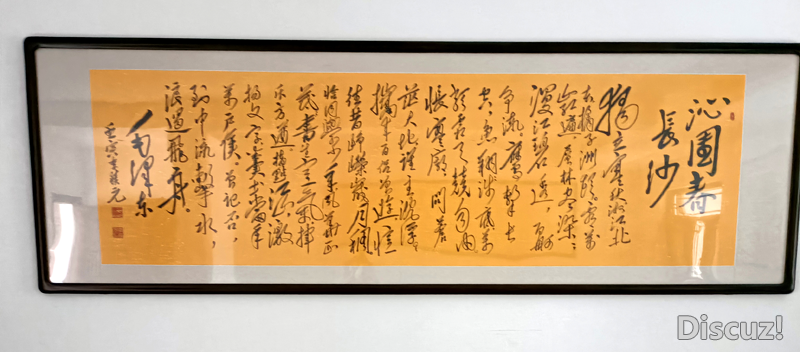 沁園春
長沙
獨立寒秋湘江北
去橘子洲頭看萬
山紅遍層林尽染
漫江碧透百舸
争流鷹擊長
空魚翔淺底萬
類霜天競自由
悵寥廓問蒼
茫大地誰主沉浮
攜来百侣曾遊憶
往昔崢嶸歲月稠
恰同學少年風華正
茂書生意氣揮
斥方遒指點江山激
揚文字糞土當年
萬户侯曾記否
到中流擊水
浪遏飛舟
毛澤东
Discuz!